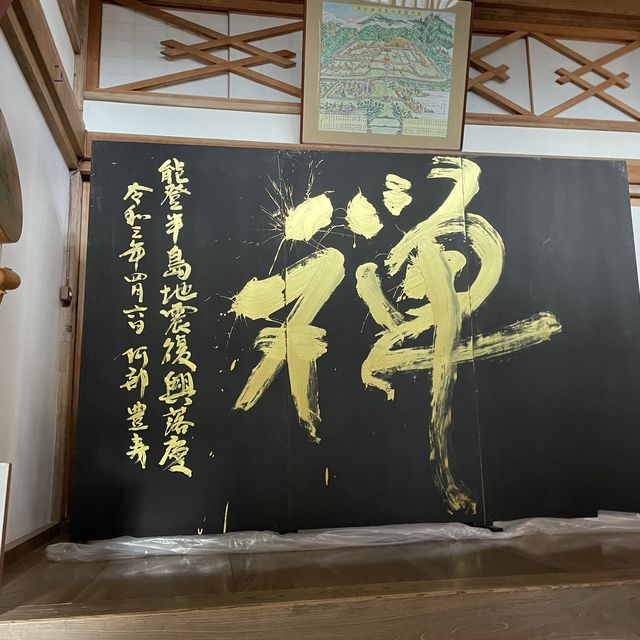 禅
能登半島地震復興落慶
令和三年四月六日 阿部豊寿